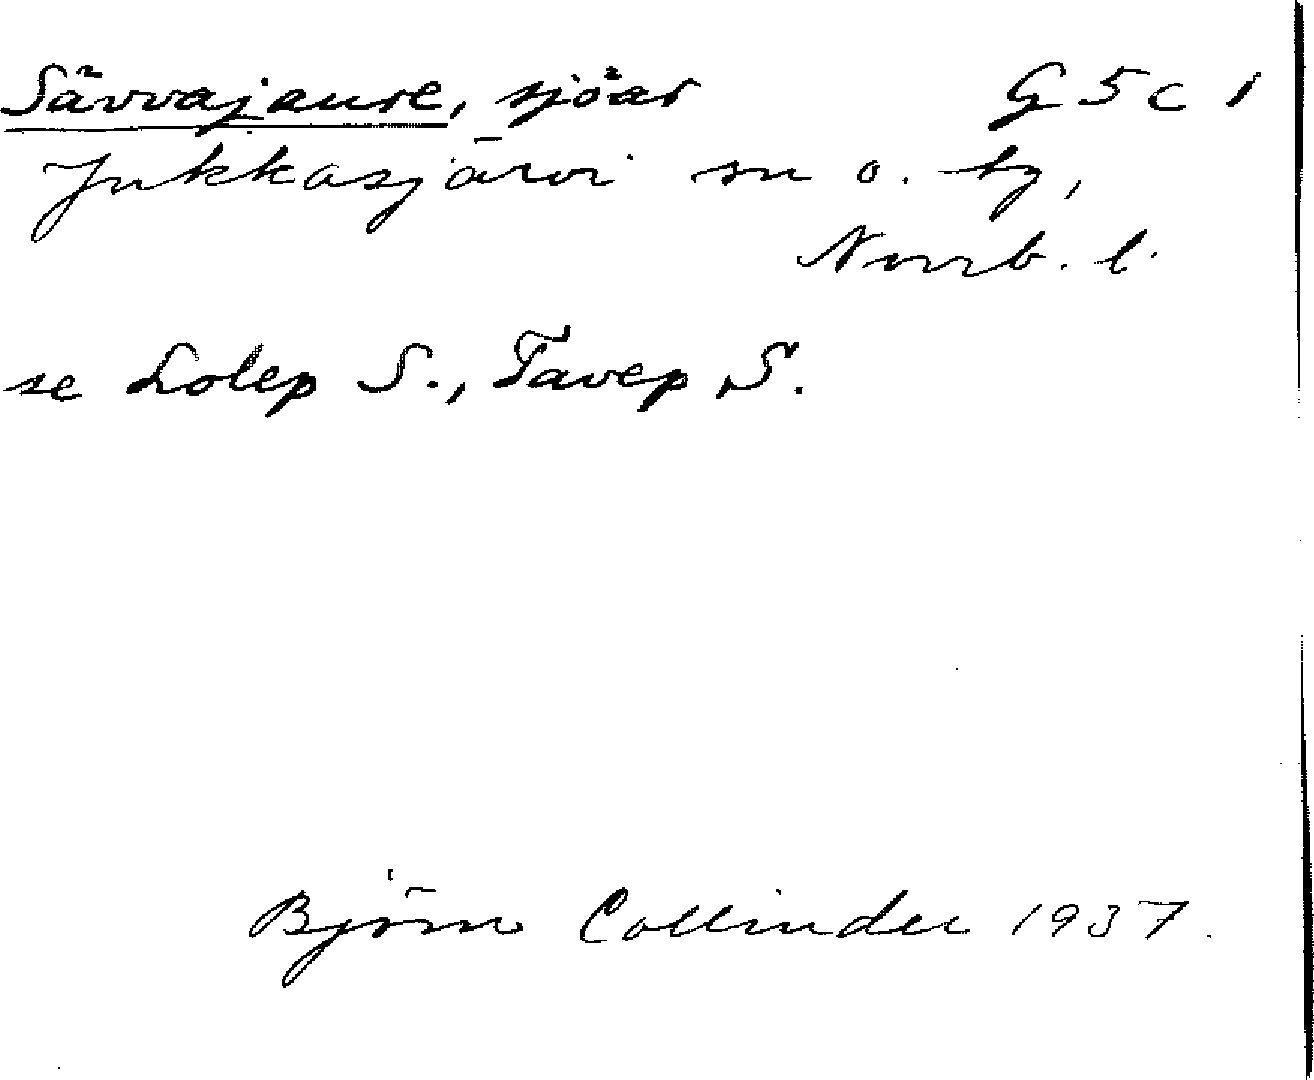 Sävvajaure, sjöar G 5 c 1
Jukkasjärvi sn o. by,
Norrb. l.
se Lolep S., Tavep S.
Björn Collinder 1937.